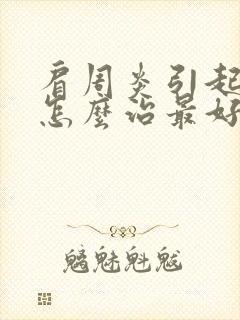 肩周炎引起
怎麼治最好
魑魅魁魃